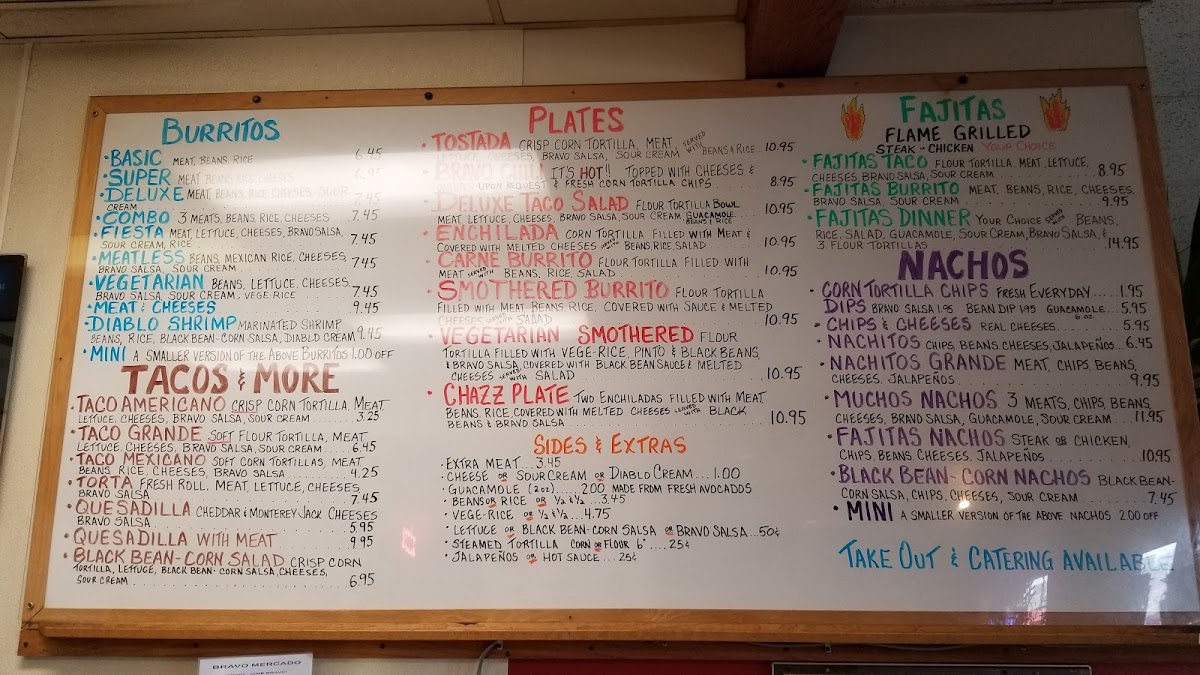 BURRITOS
·BASIC MEAT, BEANS, RICE 6.45
·SUPER MEAT BEANS RICE CHEESES 6.95
·DELUXE MEAT, BEANS, RICE, CHEESES, SOUR
CREAM 7.45
·COMBO 3 MEATS, BEANS, RICE, CHEESES 7.45
·FIESTA MEAT, LETTUCE, CHEESES, BRAVO SALSA,
SOUR CREAM, RICE 7.45
·MEATLESS BEANS, MEXICAN RICE, CHEESES,
BRAVO SALSA, SOUR CREAM 7.45
·VEGETARIAN BEANS, LETTUCE, CHEESES,
BRAVO SALSA, SOUR CREAM, VEGE RICE 7.45
·MEAT & CHEESES 9.45
·DIABLO SHRIMP MARINATED SHRIMP
BEANS, RICE, BLACK BEAN-CORN SALSA, DIABLO CREAM 9.45
·MINI A SMALLER VERSION OF THE ABOVE BURRITOS 1.00 OFF
TACOS & MORE
·TACO AMERICANO CRISP CORN TORTILLA, MEAT
LETTUCE, CHEESES, BRAVO SALSA, SOUR CREAM 3.25
·TACO GRANDE SOFT FLOUR TORTILLA, MEAT
LETTUCE, CHEESES, BRAVO SALSA, SOUR CREAM 6.45
·TACO MEXICANO SOFT CORN TORTILLAS, MEAT
BEANS, RICE, CHEESES, BRAVO SALSA 4.25
·TORTA FRESH ROLL, MEAT, LETTUCE, CHEESES,
BRAVO SALSA 7.45
·QUESADILLA CHEDDAR & MONTEREY JACK CHEESES
BRAVO SALSA 5.95
·QUESADILLA WITH MEAT 9.95
·BLACK BEAN-CORN SALAD CRISP CORN
TORTILLA, LETTUCE, BLACK BEAN-CORN SALSA, CHEESES,
SOUR CREAM 6.95
PLATES
·TOSTADA CRISP CORN TORTILLA, MEAT,
LETTUCE, CHEESES, BRAVO SALSA, SOUR CREAM SERVED WITH BEANS & RICE 10.95
·BRAVO CHILI IT'S HOT!! TOPPED WITH CHEESES &
UPON REQUEST & FRESH CORN TORTILLA CHIPS 8.95
·DELUXE TACO SALAD FLOUR TORTILLA BOWL
MEAT, LETTUCE, CHEESES, BRAVO SALSA, SOUR CREAM, GUACAMOLE BEANS & RICE 10.95
·ENCHILADA CORN TORTILLA FILLED WITH MEAT &
COVERED WITH MELTED CHEESES SERVED WITH BEANS, RICE, SALAD 10.95
·CARNE BURRITO FLOUR TORTILLA FILLED WITH
MEAT SERVED WITH BEANS, RICE, SALAD 10.95
·SMOTHERED BURRITO FLOUR TORTILLA
FILLED WITH MEAT, BEANS, RICE, COVERED WITH SAUCE & MELTED
CHEESES SERVED WITH SALAD 10.95
·VEGETARIAN SMOTHERED FLOUR
TORTILLA FILLED WITH VEGE-RICE, PINTO & BLACK BEANS,
& BRAVO SALSA, COVERED WITH BLACK BEAN SAUCE & MELTED
CHEESES SERVED WITH SALAD 10.95
·CHAZZ PLATE TWO ENCHILADAS FILLED WITH MEAT,
BEANS, RICE, COVERED WITH MELTED CHEESES SERVED WITH BLACK
BEANS & BRAVO SALSA 10.95
SIDES & EXTRAS
·EXTRA MEAT...3.45
·CHEESE OR SOUR CREAM OR DIABLO CREAM...1.00
·GUACAMOLE (2oz)......2.00 MADE FROM FRESH AVOCADOS
·BEANS OR RICE OR ½ & ½...3.45
·VEGE-RICE OR ½ & ½...4.75
·LETTUCE OR BLACK BEAN-CORN SALSA OR BRAVO SALSA...50¢
·STEAMED TORTILLA CORN OR FLOUR 6"....25¢
·JALAPEÑOS OR HOT SAUCE...25¢
FAJITAS
FLAME GRILLED
STEAK - CHICKEN YOUR CHOICE
·FAJITAS TACO FLOUR TORTILLA, MEAT, LETTUCE,
CHEESES, BRAVO SALSA, SOUR CREAM 8.95
·FAJITAS BURRITO MEAT, BEANS, RICE, CHEESES,
BRAVO SALSA, SOUR CREAM 9.95
·FAJITAS DINNER YOUR CHOICE SERVED WITH BEANS,
RICE, SALAD, GUACAMOLE, SOUR CREAM, BRAVO SALSA, &
3 FLOUR TORTILLAS 14.95
NACHOS
·CORN TORTILLA CHIPS FRESH EVERYDAY....1.95
DIPS BRAVO SALSA 1.95 BEAN DIP 1.95 GUACAMOLE 6 oz....5.95
·CHIPS & CHEESES REAL CHEESES 5.95
·NACHITOS CHIPS, BEANS, CHEESES, JALAPEÑOS...6.45
·NACHITOS GRANDE MEAT, CHIPS, BEANS,
CHEESES, JALAPEÑOS 9.95
·MUCHOS NACHOS 3 MEATS, CHIPS, BEANS,
CHEESES, BRAVO SALSA, GUACAMOLE, SOUR CREAM....11.95
·FAJITAS NACHOS STEAK OR CHICKEN,
CHIPS, BEANS, CHEESES, JALAPEÑOS 10.95
·BLACK BEAN-CORN NACHOS BLACK BEAN-
CORN SALSA, CHIPS, CHEESES, SOUR CREAM 7.45
·MINI A SMALLER VERSION OF THE ABOVE NACHOS 2.00 OFF
TAKE OUT & CATERING AVAILABLE
BRAVO MERCADO